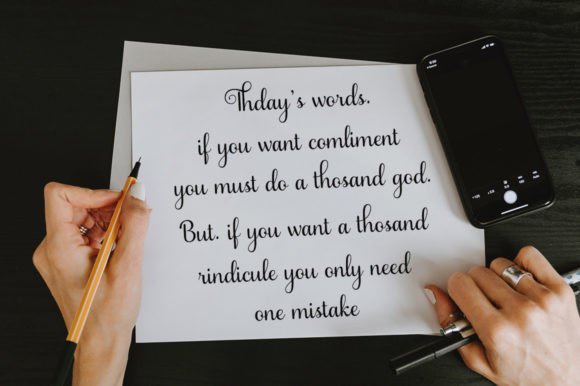 Thday's words.
if you want comliment
you must do a thosand god.
But. if you want a thosand
rindicule you only need
one mistake